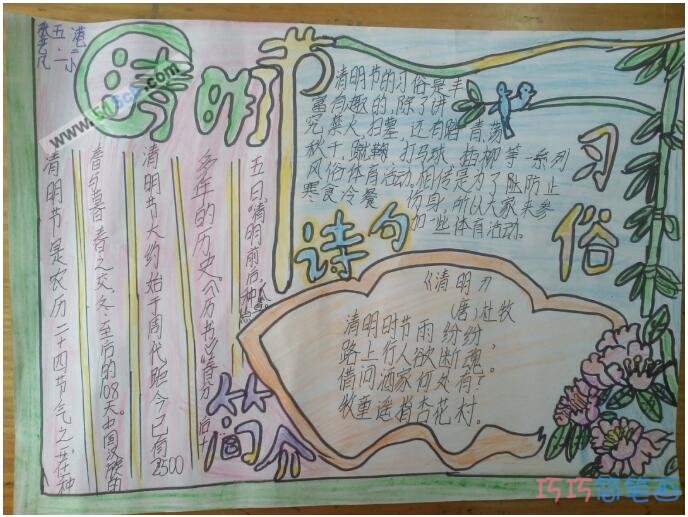 港二小
五·一
清明节
清明节是农历二十四节气之一,在种
春与暮春之交,冬至后的108天。中国汉族的
清明节大约始于周代,距今已有2500
多年的历史。《历书》:春分后十
五日,清明前后,种
简介
清明节的习俗是丰
富有趣的,除了讲
究禁火、扫墓,还有踏青、荡
秋千、蹴鞠、打马球、插柳等一系列
风俗体育活动。相传是为了防止
寒食冷餐伤身,所以大家来参
加一些体育活动。
习俗
诗句
《清明》
(唐)杜牧
清明时节雨纷纷,
路上行人欲断魂。
借问酒家何处有?
牧童遥指杏花村。
巧巧简笔画